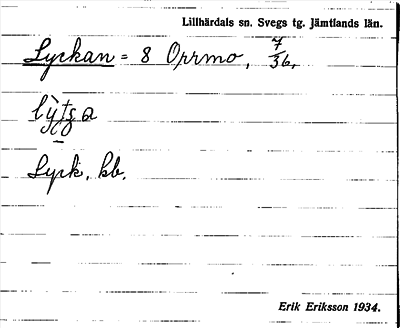 Lillhärdals sn. Svegs tg. Jämtlands län.
Lyckan = 8 Oprmo, 7/36,
Lyck, bb.
Erik Eriksson 1934.